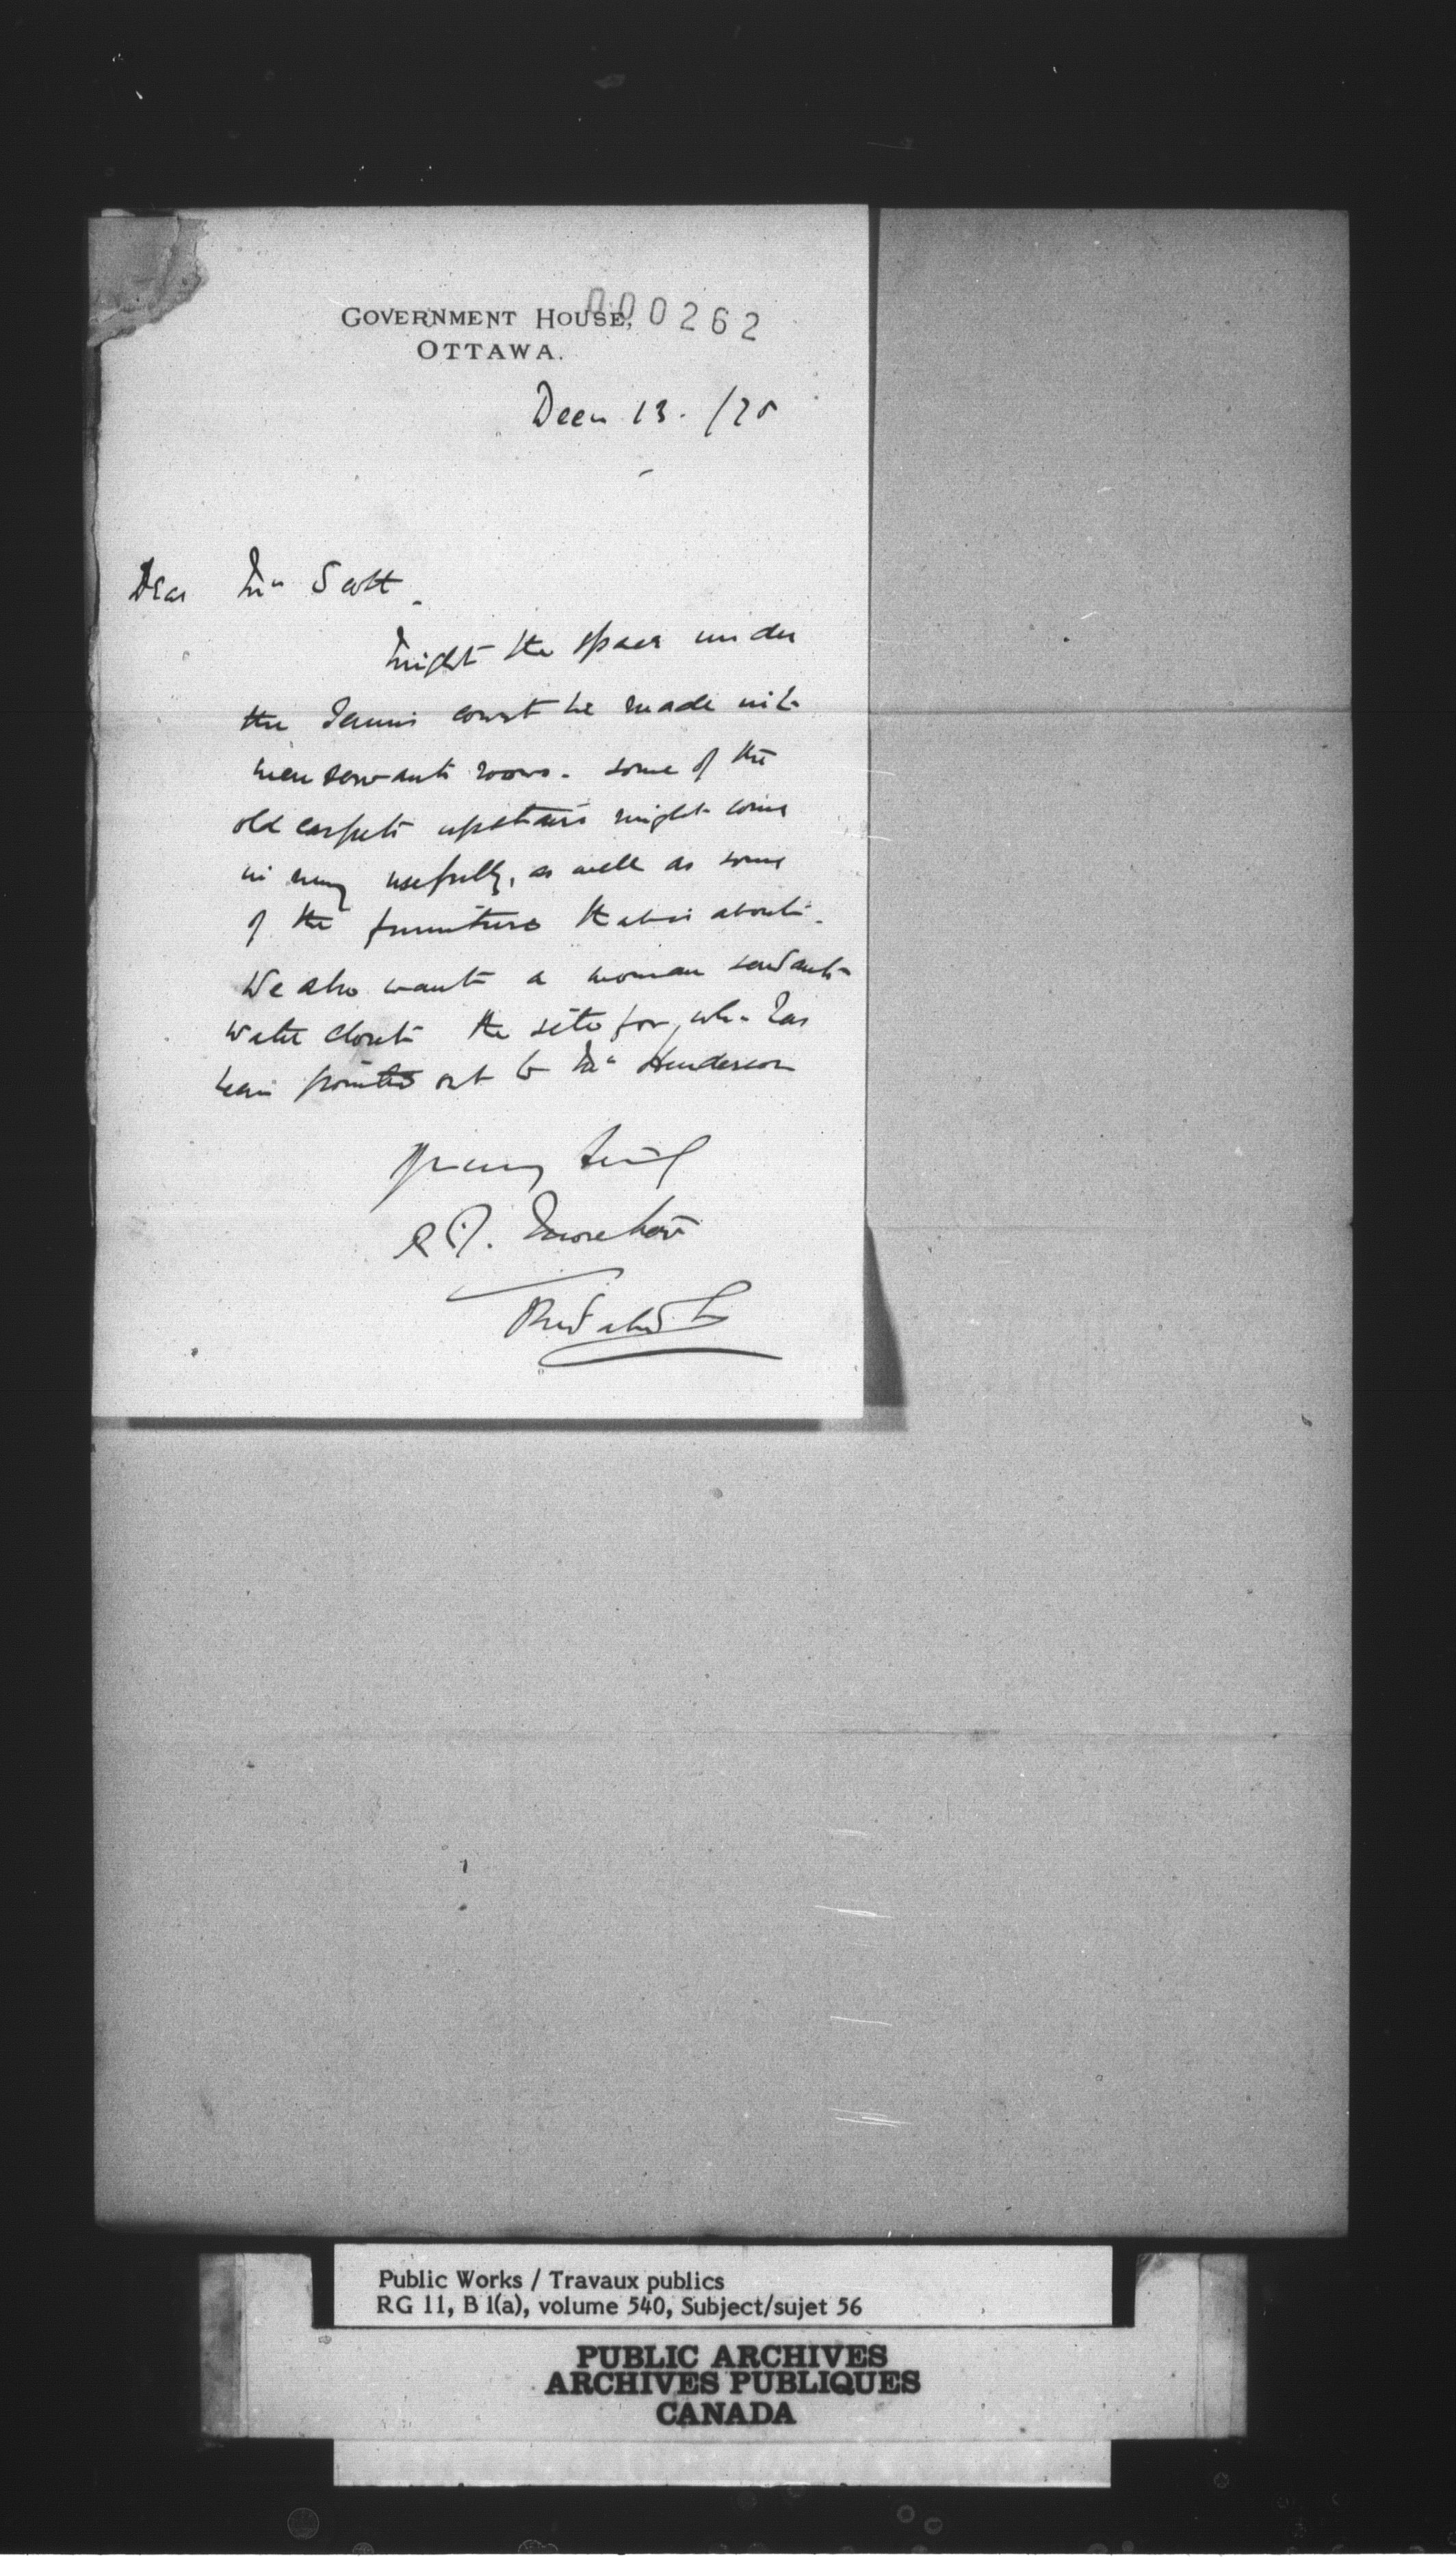 000262
GOVERNMENT HOUSE,
OTTAWA.
Decr 13. /78
Dear Mr Scott.
Might the space under
the Tennis court be made into
men servants rooms. some of the
old carpets upstairs might come
in very usefully, as well as some
of the furniture that is about.
We also want a woman servants
water closet the site for wh. has
been pointed out to Mr Henderson
Yours truly
R. Moreton
Public Works / Travaux publics
RG 11, B 1(a), volume 540, Subject/sujet 56
PUBLIC ARCHIVES
ARCHIVES PUBLIQUES
CANADA